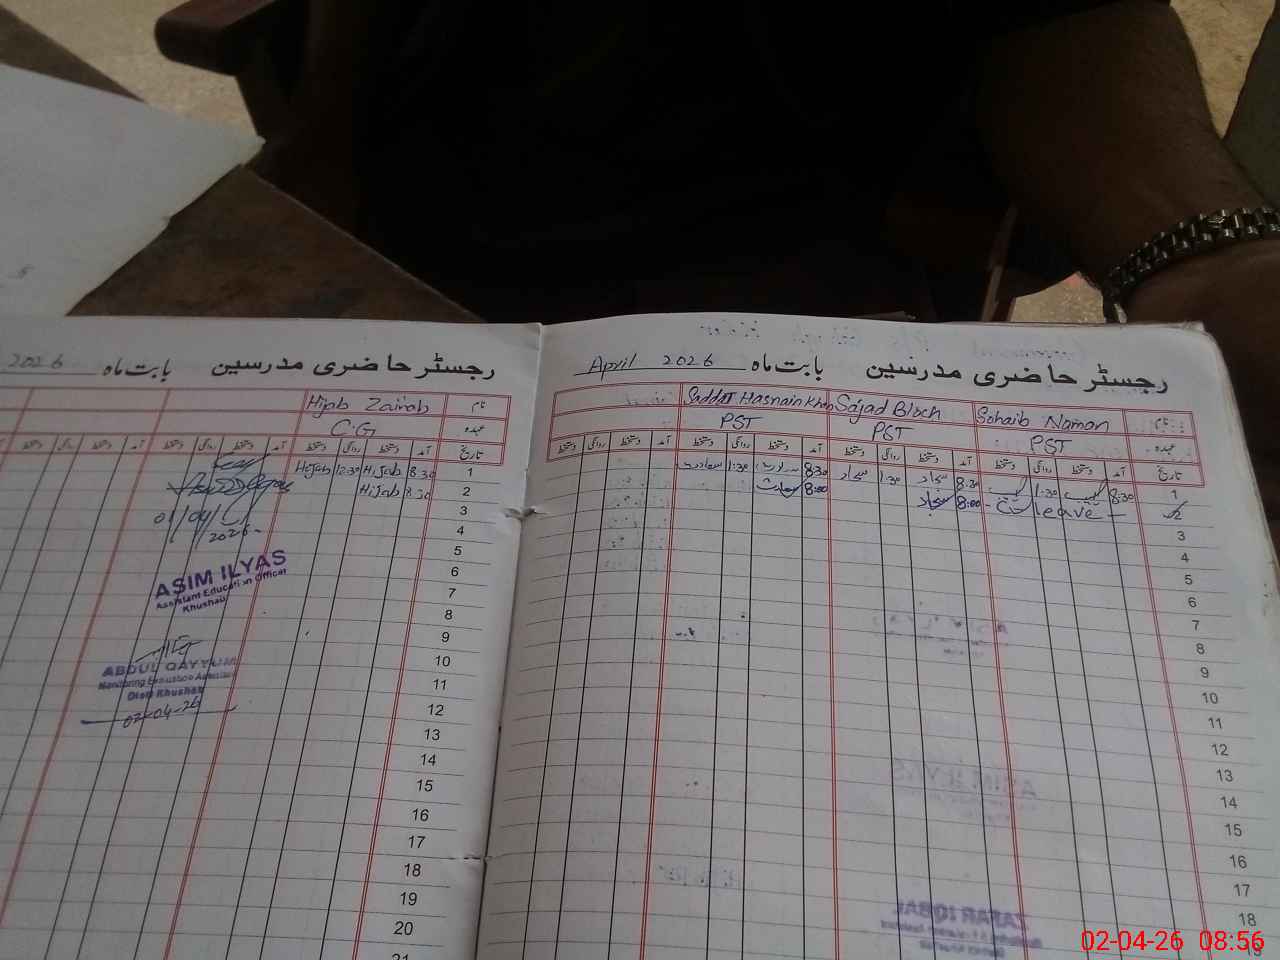 رجسٹر حاضری مدرسین بابت ماہ April 2026
نام Sohaib Noman Sajad Bloch Saddat Hasnain Khan
عہدہ PST PST PST
تاریخ آمد دستخط روانگی دستخط آمد دستخط روانگی دستخط آمد دستخط روانگی دستخط آمد دستخط روانگی دستخط
1 8:30 1:30 8:30 سجاد 1:30 سجاد 8:30 1:30
2 leave 8:00 سجاد 8:00
3
4
5
6
7
8
9
10
11
12
13
14
15
16
17
18
19
رجسٹر حاضری مدرسین بابت ماہ 2026
نام Hijab Zainab
عہدہ C.G
تاریخ آمد دستخط روانگی دستخط آمد دستخط روانگی دستخط آمد دستخط روانگی دستخط
1 8:30 Hijab 12:30 Hijab
2 8:30 Hijab
3
4
5
6
7
8
9
10
11
12
13
14
15
16
17
18
19
20
21
01/04/
2026
ASIM ILYAS
Assistant Education Officer
Khushab
ABDUL QAYYUM
Monitoring Evaluation Assistant
Distt Khushab
02-04-26
ASIM ILYAS
ZAFAR IQBAL
02-04-26 08:56